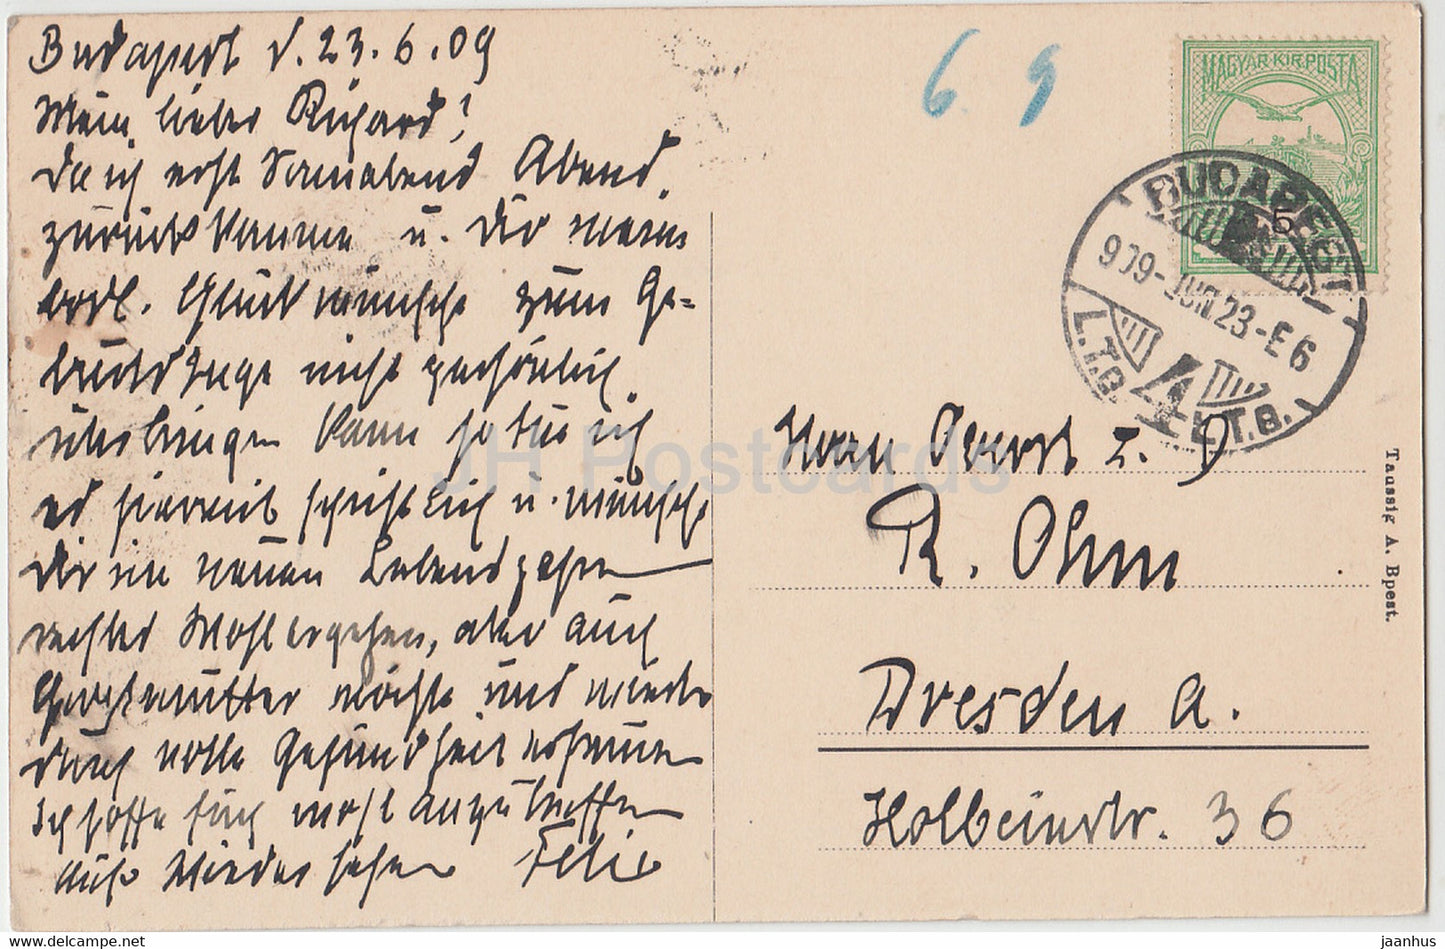 Budapest d. 23.6.09
Mein lieber Richard!
Da ich erst Sonnabend Abend
zurück komme u. Dir meine
herzl. Glückwünsche zum Ge-
burtstage nicht persönlich
überbringen kann so tue ich
es hiermit schriftlich u. wünsche
Dir im neuen Lebensjahre
rechtes Wohlergehen, aber auch
Grossmutter möchte sich wieder
durch volle Gesundheit erfreuen
Ich hoffe Euch wohl anzutreffen
Auf Wiedersehen Felix
6. 9
MAGYAR·KIR·POSTA
5
BUDAPEST
909-JUN 23-E6
L.T.B. 4 L.T.B.
Herrn Oberst z. D
R. Ohm
Dresden A.
Holbeinstr. 36
Taussig A. Bpest.
JH Postcards
jaanhus
www.delcampe.net